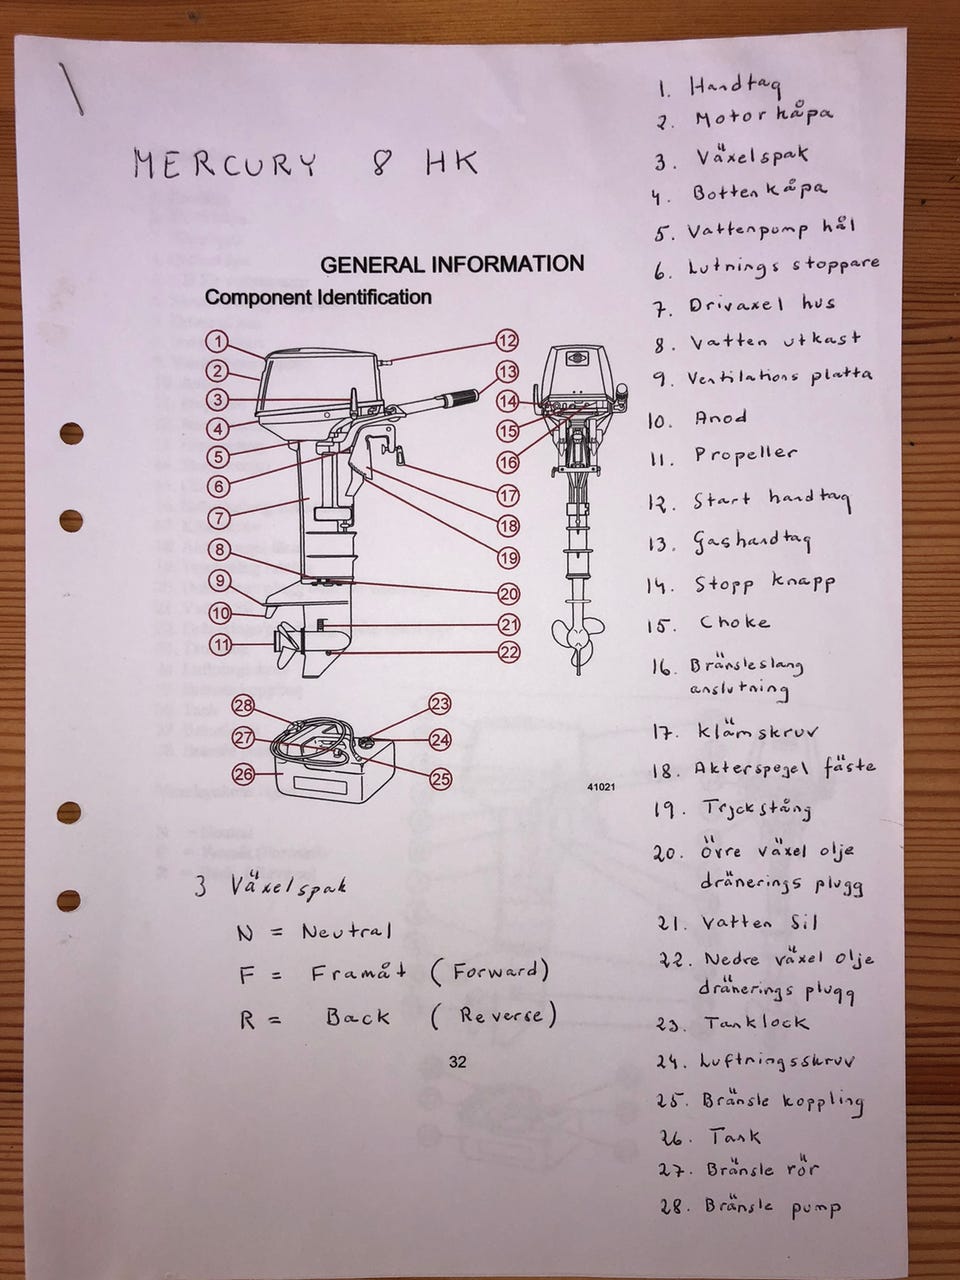 MERCURY 8 HK
GENERAL INFORMATION
Component Identification
1
2
3
4
5
6
7
8
9
10
11
12
13
14
15
16
17
18
19
20
21
22
28
27
26
23
24
25
41021
3 Växelspak
N = Neutral
F = Framåt (Forward)
R = Back (Reverse)
32
1. Handtag
2. Motor kåpa
3. Växelspak
4. Botten kåpa
5. Vattenpump hål
6. Lutnings stoppare
7. Drivaxel hus
8. Vatten utkast
9. Ventilations platta
10. Anod
11. Propeller
12. Start handtag
13. Gashandtag
14. Stopp knapp
15. Choke
16. Bränsleslang
anslutning
17. Klämskruv
18. Akterspegel fäste
19. Tryckstång
20. Övre växel olje
dränerings plugg
21. Vatten Sil
22. Nedre växel olje
dränerings plugg
23. Tanklock
24. Luftningsskruv
25. Bränsle koppling
26. Tank
27. Bränsle rör
28. Bränsle pump